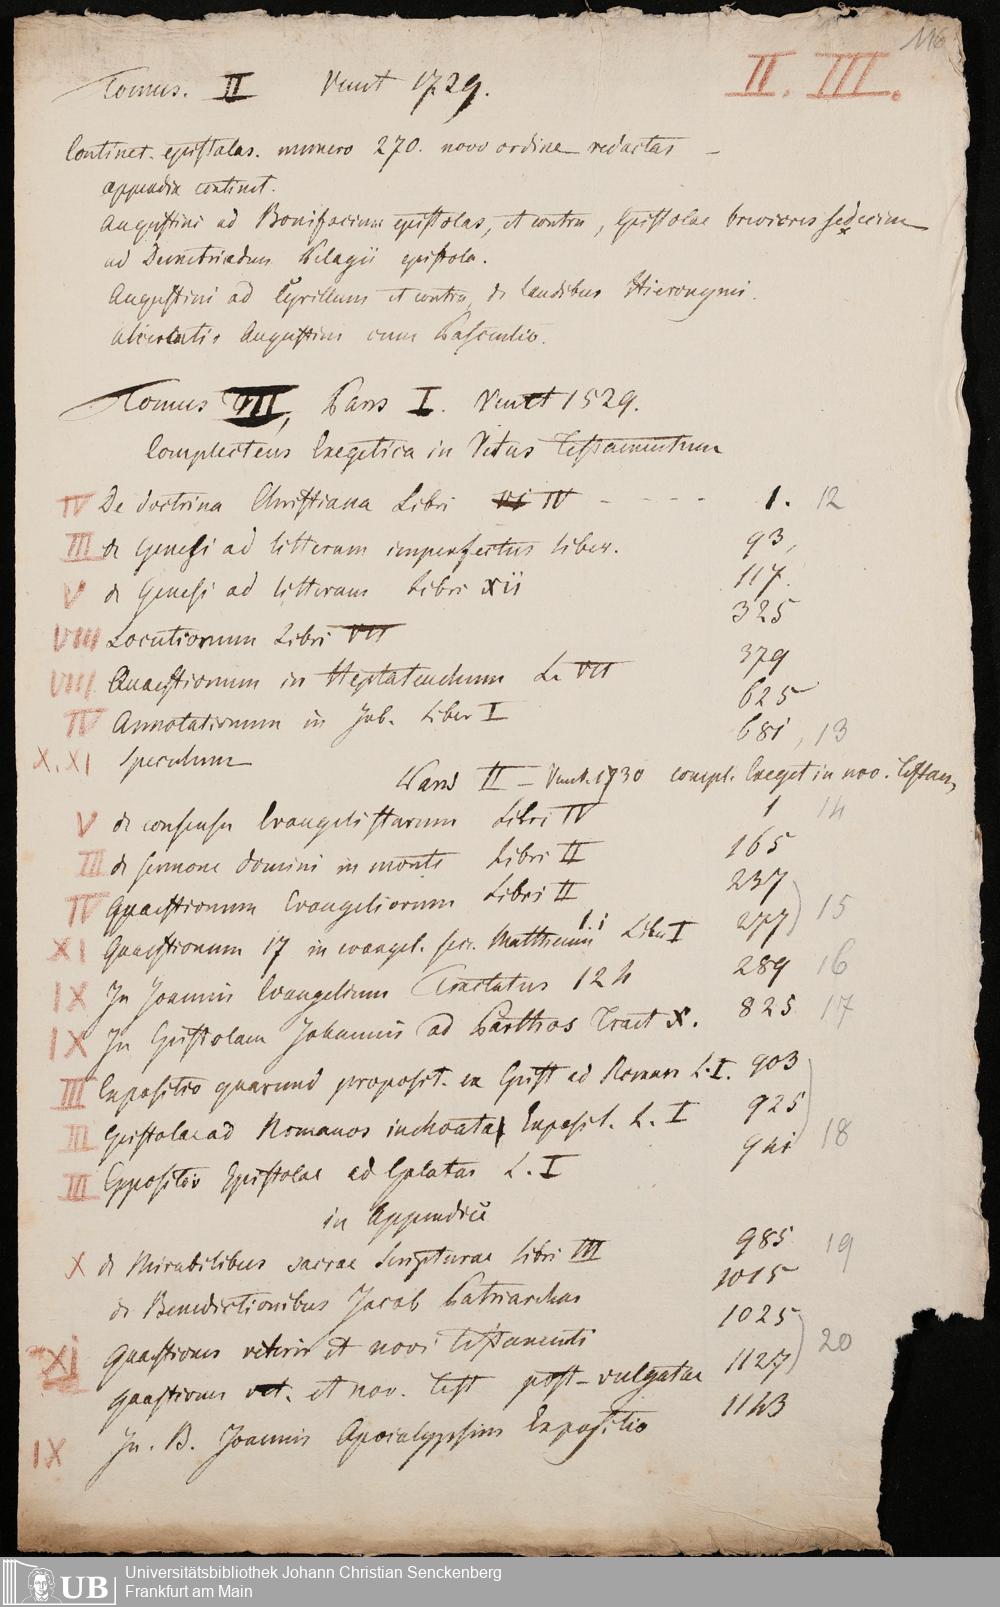 116
II. III.
Tomus. II Venet 1729.
Continet. epistolas. numero 270. novo ordine redactas —
appendix continet.
Augustini ad Bonifacium epistolas, et contra, Epistolae breviores sedecim
ad Demetriadem Pelagii epistola.
Augustini ad Cyrillum et contra, de laudibus Hieronymi.
altercatio Augustini cum Pascentio.
Tomus III, Pars I. Venet 1529.
Complectens Exegetica in Vetus Testamentum
IV De doctrina Christiana Libri IV - - - - - 1. 12
III de Genesi ad litteram imperfectus liber. 93,
V de Genesi ad litteram Libri xii 117.
VIII Locutionum Libri VII 325
VIII Quaestionum in Heptateuchum L. VII 379
IV Annotationum in Job. Liber I 625
X. XI Speculum 681, 13
Pars II — Venet. 1730 compl. Exeget in nov. Testam,
V de consensu Evangelistarum Libri IV 1 14
III de sermone domini in monte Libri II 165
IV Quaestionum Evangeliorum Libri II 237
XI Quaestionum 17 in evangel. sec. Matthaeum Liber I 277 15
IX In Joannis Evangelium Tractatus 124 289 16
IX In Epistolam Johannis ad Parthos Tract X. 825 17
III Expositio quarund proposit. ex Epist ad Roman L. I. 903
III Epistolae ad Romanos inchoata Exposit. L. I 925
III Expositio Epistolae ad Galatas L. I 941 18
in Appendice
X de Mirabilibus sacrae Scripturae libri III 985 19
de Benedictionibus Jacob Patriarchae 1015
XI Quaestiones veteris et novi testamenti 1025
Quaestiones vet. et nov. test post-vulgatae 1127 20
IX In. B. Joannis Apocalypsim Expositio 1143
UB
Universitätsbibliothek Johann Christian Senckenberg
Frankfurt am Main